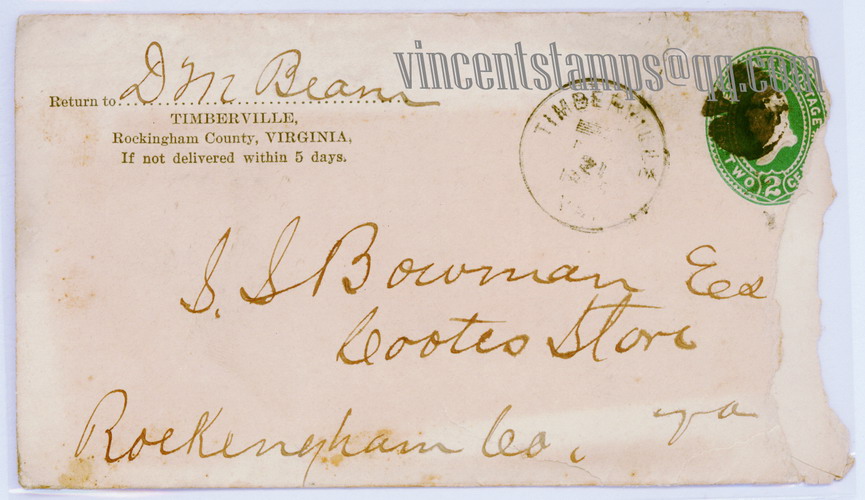 vincentstamps@qq.com
Return to D M Beam
TIMBERVILLE,
Rockingham County, VIRGINIA,
If not delivered within 5 days.
TIMBERVILLE
TWO 2 CE
AGE
S. S Bowman
Cootes Store
Rockengham Co, va